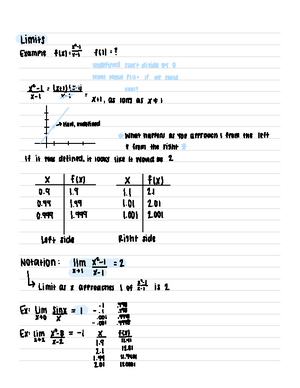 Limits
Example f(x) = x²-1/x-1 f(1) = ?
undefined, can't divide by 0
what about f(x) if we
x²-1/x-1 = (x+1)(x-1)/x-1 = x+1, as long as x ≠ 1
→ Hole, undefined
What happens as you approach 1 from the left
& from the right
If it was defined, it looks like it would be 2
x f(x) x f(x)
0.9 1.9 1.1 2.1
0.99 1.99 1.01 2.01
0.999 1.999 1.001 2.001
Left side Right side
Notation: lim x→1 x²-1/x-1 = 2
Limit as x approaches 1 of x²-1/x-1 is 2
Ex: lim x→0 sinx/x = 1
-.1 .998
-.001
Ex: lim x→2 x²-8/x-2 = -1
x f(x)
1.9
2.1
1.99
2.01